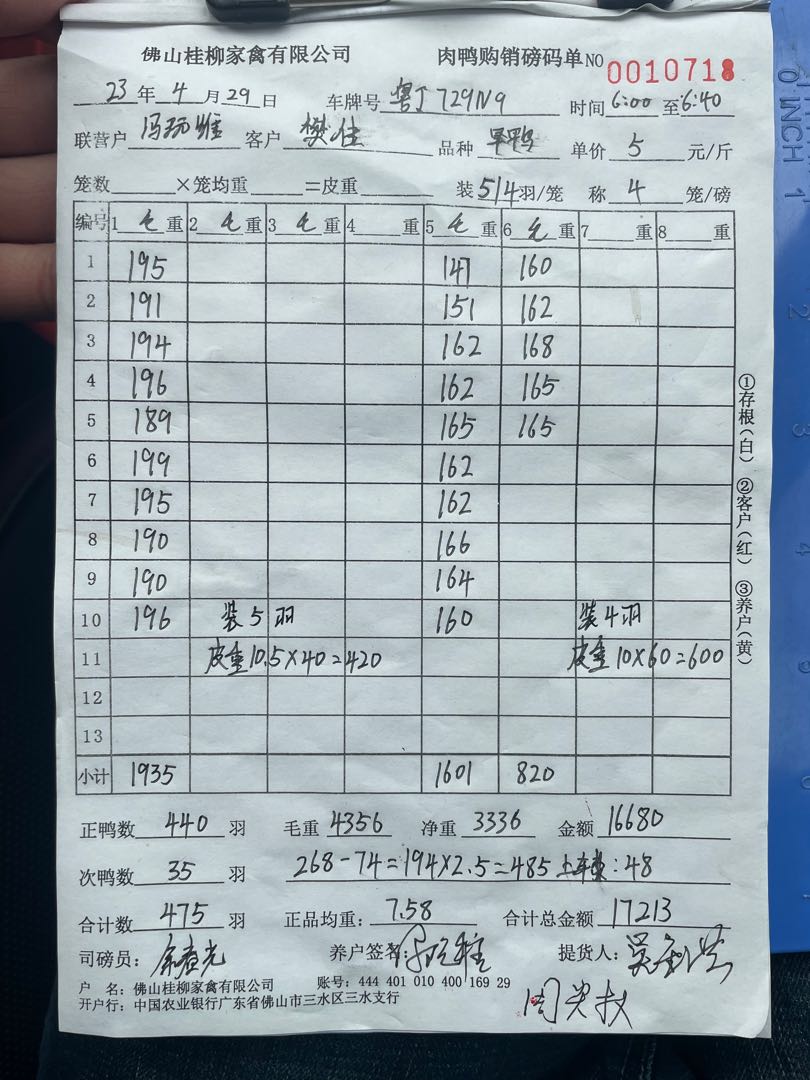 佛山桂柳家禽有限公司 肉鸭购销磅码单NO 0010718
23年4月29日 车牌号 粤J729N9 时间6:00至6:40
联营户 客户 樊佳 品种 单价 5 元/斤
笼数 ×笼均重 =皮重 装5/4羽/笼 称 4 笼/磅
编号 1毛重 2毛重 3毛重 4重 5毛重 6毛重 7重 8重
1 195 147 160
2 191 151 162
3 194 162 168
4 196 162 165
5 189 165 165
6 199 162
7 195 162
8 190 166
9 190 164
10 196 装5羽 160 装4羽
11 皮重10.5×40=420 皮重10×60=600
12
13
小计 1935 1601 820
正鸭数 440 羽 毛重 4356 净重 3336 金额 16680
次鸭数 35 羽 268-74=194×2.5=485 上车费:48
合计数 475 羽 正品均重: 7.58 合计总金额 17213
司磅员: 养户签名: 提货人:
户 名: 佛山桂柳家禽有限公司 账号: 444 401 010 400 169 29
开户行: 中国农业银行广东省佛山市三水区三水支行
①存根(白) ②客户(红) ③养户(黄)
0 INCH 1
2
3
4
5